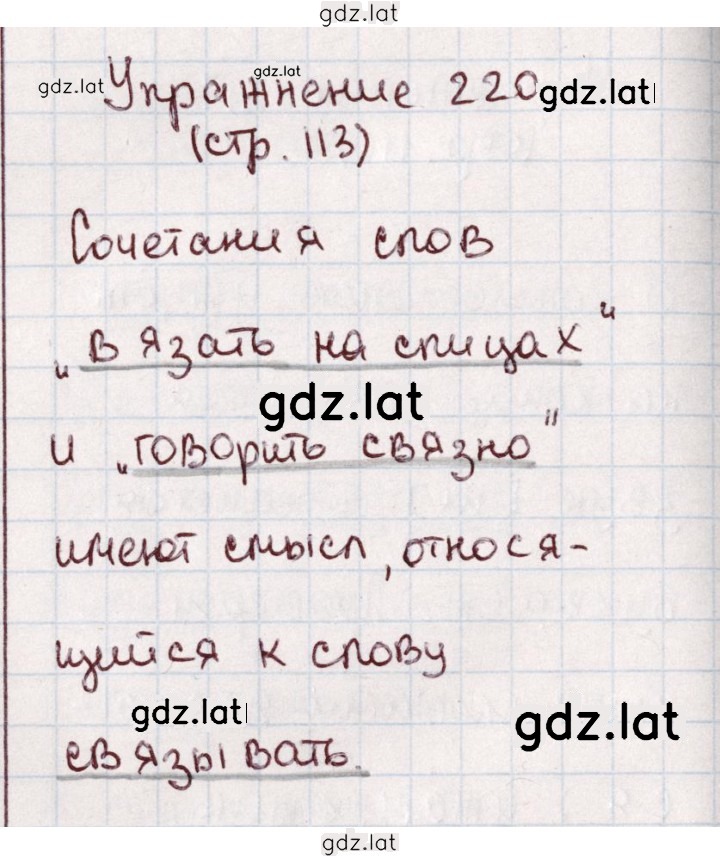 gdz.lat
gdz.lat gdz.lat
Упражнение 220 gdz.lat
(стр. 113)
Сочетания слов
„вязать на спицах“
gdz.lat
и „говорить связно“
имеют смысл, относя-
щийся к слову
gdz.lat gdz.lat
связывать.
gdz.lat